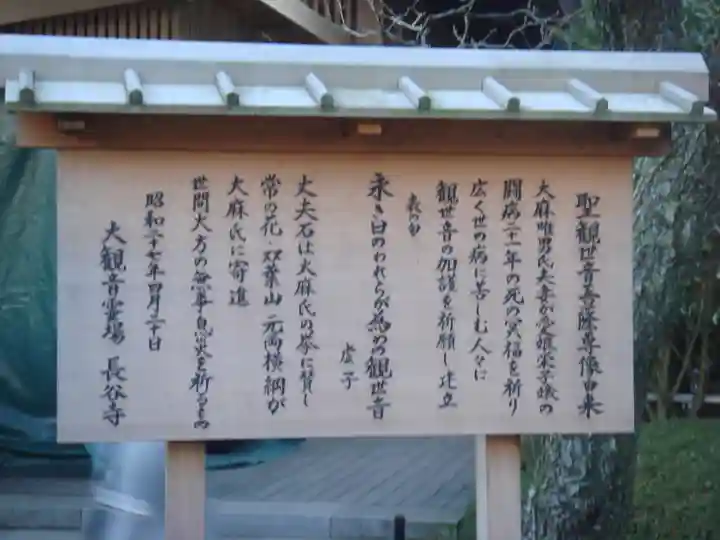 聖観世音菩薩尊像由来
大麻唯男氏夫妻が愛嬢米子嬢の
闘病二十一年の死の冥福を祈り
広く世の病に苦しむ人々に
観世音の加護を祈願し建立
表の句
永き日のわれらが為めの観世音
虚子
丈夫石は大麻氏の挙に賛し
常の花・双葉山元両横綱が
大麻氏に寄進
世間大方の無事息災を祈るもの
昭和二十七年四月二十日
大観音霊場 長谷寺